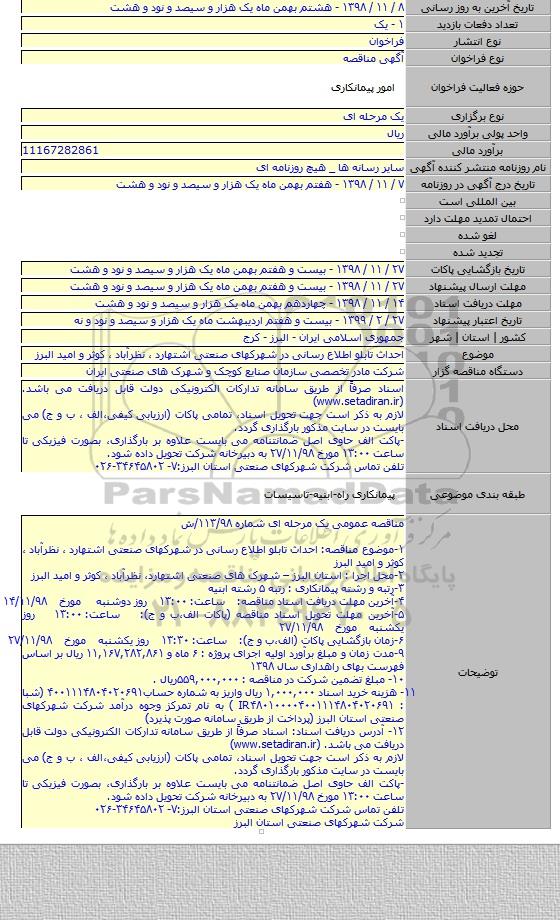 تاریخ آخرین به روز رسانی ۸ / ۱۱ / ۱۳۹۸ - هشتم بهمن ماه یک هزار و سیصد و نود و هشت
تعداد دفعات بازدید ۱ - یک
نوع انتشار فراخوان
نوع فراخوان آگهی مناقصه
حوزه فعالیت فراخوان امور پیمانکاری
نوع برگزاری یک مرحله ای
واحد پولی برآورد مالی ریال
برآورد مالی 11167282861
نام روزنامه منتشر کننده آگهی سایر رسانه ها _ هیچ روزنامه ای
تاریخ درج آگهی در روزنامه ۷ / ۱۱ / ۱۳۹۸ - هفتم بهمن ماه یک هزار و سیصد و نود و هشت
بین المللی است
احتمال تمدید مهلت دارد
لغو شده
تجدید شده
تاریخ بازگشایی پاکات ۲۷ / ۱۱ / ۱۳۹۸ - بیست و هفتم بهمن ماه یک هزار و سیصد و نود و هشت
مهلت ارسال پیشنهاد ۲۷ / ۱۱ / ۱۳۹۸ - بیست و هفتم بهمن ماه یک هزار و سیصد و نود و هشت
مهلت دریافت اسناد ۱۴ / ۱۱ / ۱۳۹۸ - چهاردهم بهمن ماه یک هزار و سیصد و نود و هشت
تاریخ اعتبار پیشنهاد ۲۷ / ۲ / ۱۳۹۹ - بیست و هفتم اردیبهشت ماه یک هزار و سیصد و نود و نه
کشور | استان | شهر جمهوری اسلامی ایران - البرز - کرج
موضوع احداث تابلو اطلاع رسانی در شهرکهای صنعتی اشتهارد ، نظرآباد ، کوثر و امید البرز
دستگاه مناقصه گزار شرکت مادر تخصصی سازمان صنایع کوچک و شهرک های صنعتی ایران
محل دریافت اسناد
اسناد صرفاً از طریق سامانه تدارکات الکترونیکی دولت قابل دریافت می باشد.
(www.setadiran.ir)
لازم به ذکر است جهت تحویل اسناد، تمامی پاکات (ارزیابی کیفی،الف ، ب و ج) می
بایست در سایت مذکور بارگذاری گردد.
-پاکت الف حاوی اصل ضمانتنامه می بایست علاوه بر بارگذاری، بصورت فیزیکی تا
ساعت ۱۳:۰۰ مورخ ۲۷/۱۱/۹۸ به دبیرخانه شرکت تحویل داده شود.
تلفن تماس شرکت شهرکهای صنعتی استان البرز:۷- ۳۴۶۴۵۸۰۲-۰۲۶
طبقه بندی موضوعی پیمانکاری راه-ابنیه-تاسیسات
ParsNamadData
مرکز فرآوری اطلاعات پارس نماد داده ها
توضیحات
مناقصه عمومی یک مرحله ای شماره ۱۱۳/۹۸/ش
۱-موضوع مناقصه: احداث تابلو اطلاع رسانی در شهرکهای صنعتی اشتهارد ، نظرآباد ،
کوثر و امید البرز
۲-محل اجرا : استان البرز – شهرک های صنعتی اشتهارد، نظرآباد ، کوثر و امید البرز
۳-رتبه و رشته پیمانکاری : رتبه ۵ رشته ابنیه
۴-آخرین مهلت دریافت اسناد مناقصه: ساعت: ۱۳:۰۰ روز دوشنبه مورخ ۱۴/۱۱/۹۸
۵-آخرین مهلت تحویل اسناد مناقصه (پاکات الف،ب و ج): ساعت: ۱۳:۰۰ روز
یکشنبه مورخ ۲۷/۱۱/۹۸
۶-زمان بازگشایی پاکات (الف،ب و ج): ساعت: ۱۳:۳۰ روز یکشنبه مورخ ۲۷/۱۱/۹۸
۹-مدت زمان و مبلغ برآورد اولیه اجرای پروژه : ۶ ماه و ۱۱,۱۶۷,۲۸۲,۸۶۱ ریال بر اساس
فهرست بهای راهداری سال ۱۳۹۸
۱۰- مبلغ تضمین شرکت در مناقصه : ۵۵۹,۰۰۰,۰۰۰ریال .
۱۱- هزینه خرید اسناد ۱,۰۰۰,۰۰۰ ریال واریز به شماره حساب۴۰۰۱۱۱۴۸۰۴۰۲۰۶۹۱ (شبا
: IR۴۸۰۱۰۰۰۰۴۰۰۱۱۱۴۸۰۴۰۲۰۶۹۱ ) به نام تمرکز وجوه درآمد شرکت شهرکهای
صنعتی استان البرز (پرداخت از طریق سامانه صورت پذیرد)
۱۲- آدرس دریافت اسناد: اسناد صرفاً از طریق سامانه تدارکات الکترونیکی دولت قابل
دریافت می باشد. (www.setadiran.ir)
لازم به ذکر است جهت تحویل اسناد، تمامی پاکات (ارزیابی کیفی،الف ، ب و ج) می
بایست در سایت مذکور بارگذاری گردد.
-پاکت الف حاوی اصل ضمانتنامه می بایست علاوه بر بارگذاری، بصورت فیزیکی تا
ساعت ۱۳:۰۰ مورخ ۲۷/۱۱/۹۸ به دبیرخانه شرکت تحویل داده شود.
تلفن تماس شرکت شهرکهای صنعتی استان البرز:۷- ۳۴۶۴۵۸۰۲-۰۲۶
شرکت شهرکهای صنعتی استان البرز